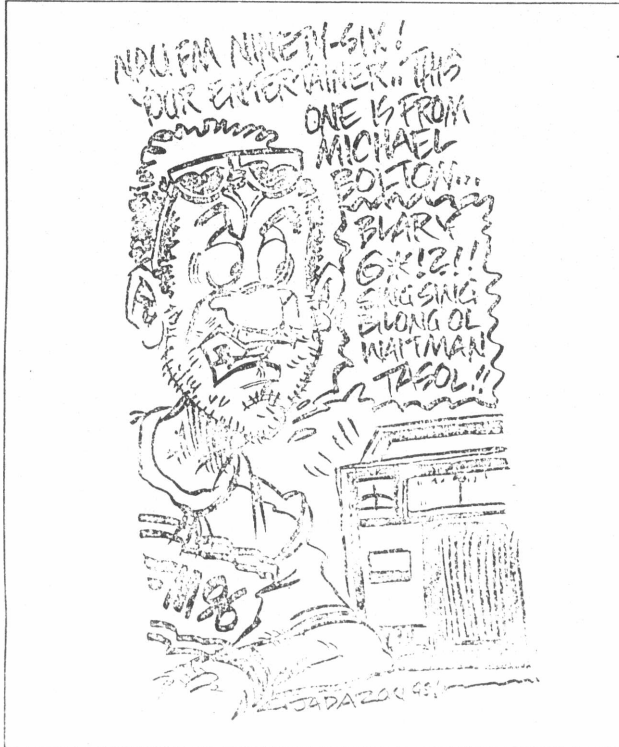 NAU FM NINETY-SIX!
YOUR ENTERTAINER!! THIS
ONE IS FROM
MICHAEL
BOLTON...
BLARY
G*K!2!!
SINGSING
BILONG OL
WAITMAN
TASOL!!